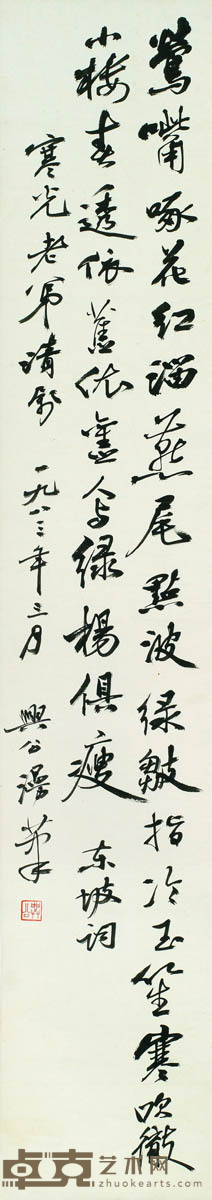 鶯嘴啄花红溜燕尾點波绿皺指冷玉笙寒吹徹
小楼春透依舊依舊人与绿楊俱瘦 东坡词
寒光老弟 一九八三年三月 興公漫筆
卓克艺术网
zhuokearts.com